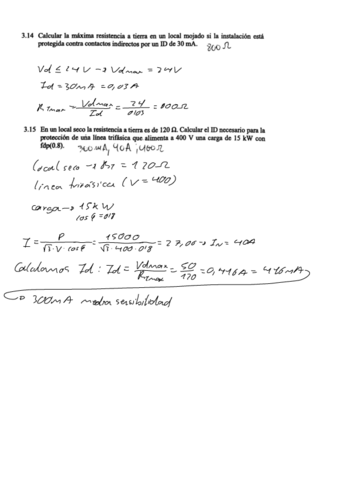 3.14 Calcular la máxima resistencia a tierra en un local mojado si la instalación está
protegida contra contactos indirectos por un ID de 30 mA. 800Ω
Vd ≤ 24V → Vdmax = 24V
Id = 30mA = 0,03A
RTmax = Vdmax/Id = 24/0,03 = 800Ω
3.15 En un local seco la resistencia a tierra es de 120 Ω. Calcular el ID necesario para la
protección de una línea trifásica que alimenta a 400 V una carga de 15 kW con
fdp(0.8). 300mA, 40A, 400V
Local seco → RT = 120Ω
línea trifásica (V = 400)
carga → 15kW
cos φ = 0,8
I = P/√3·V·cosφ = 15000/√3·400·0,8 = 27,06 → IN = 40A
Calculamos Id: Id = Vdmax/RTmax = 50/120 = 0,416A = 416mA
→ 300mA media sensibilidad